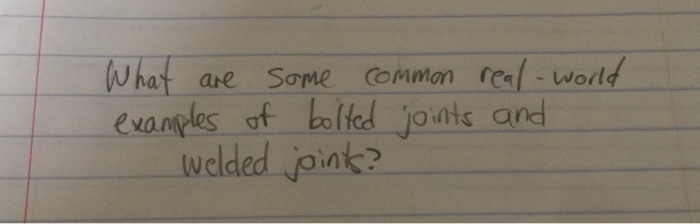 What are some common real-world
examples of bolted joints and
welded joints?